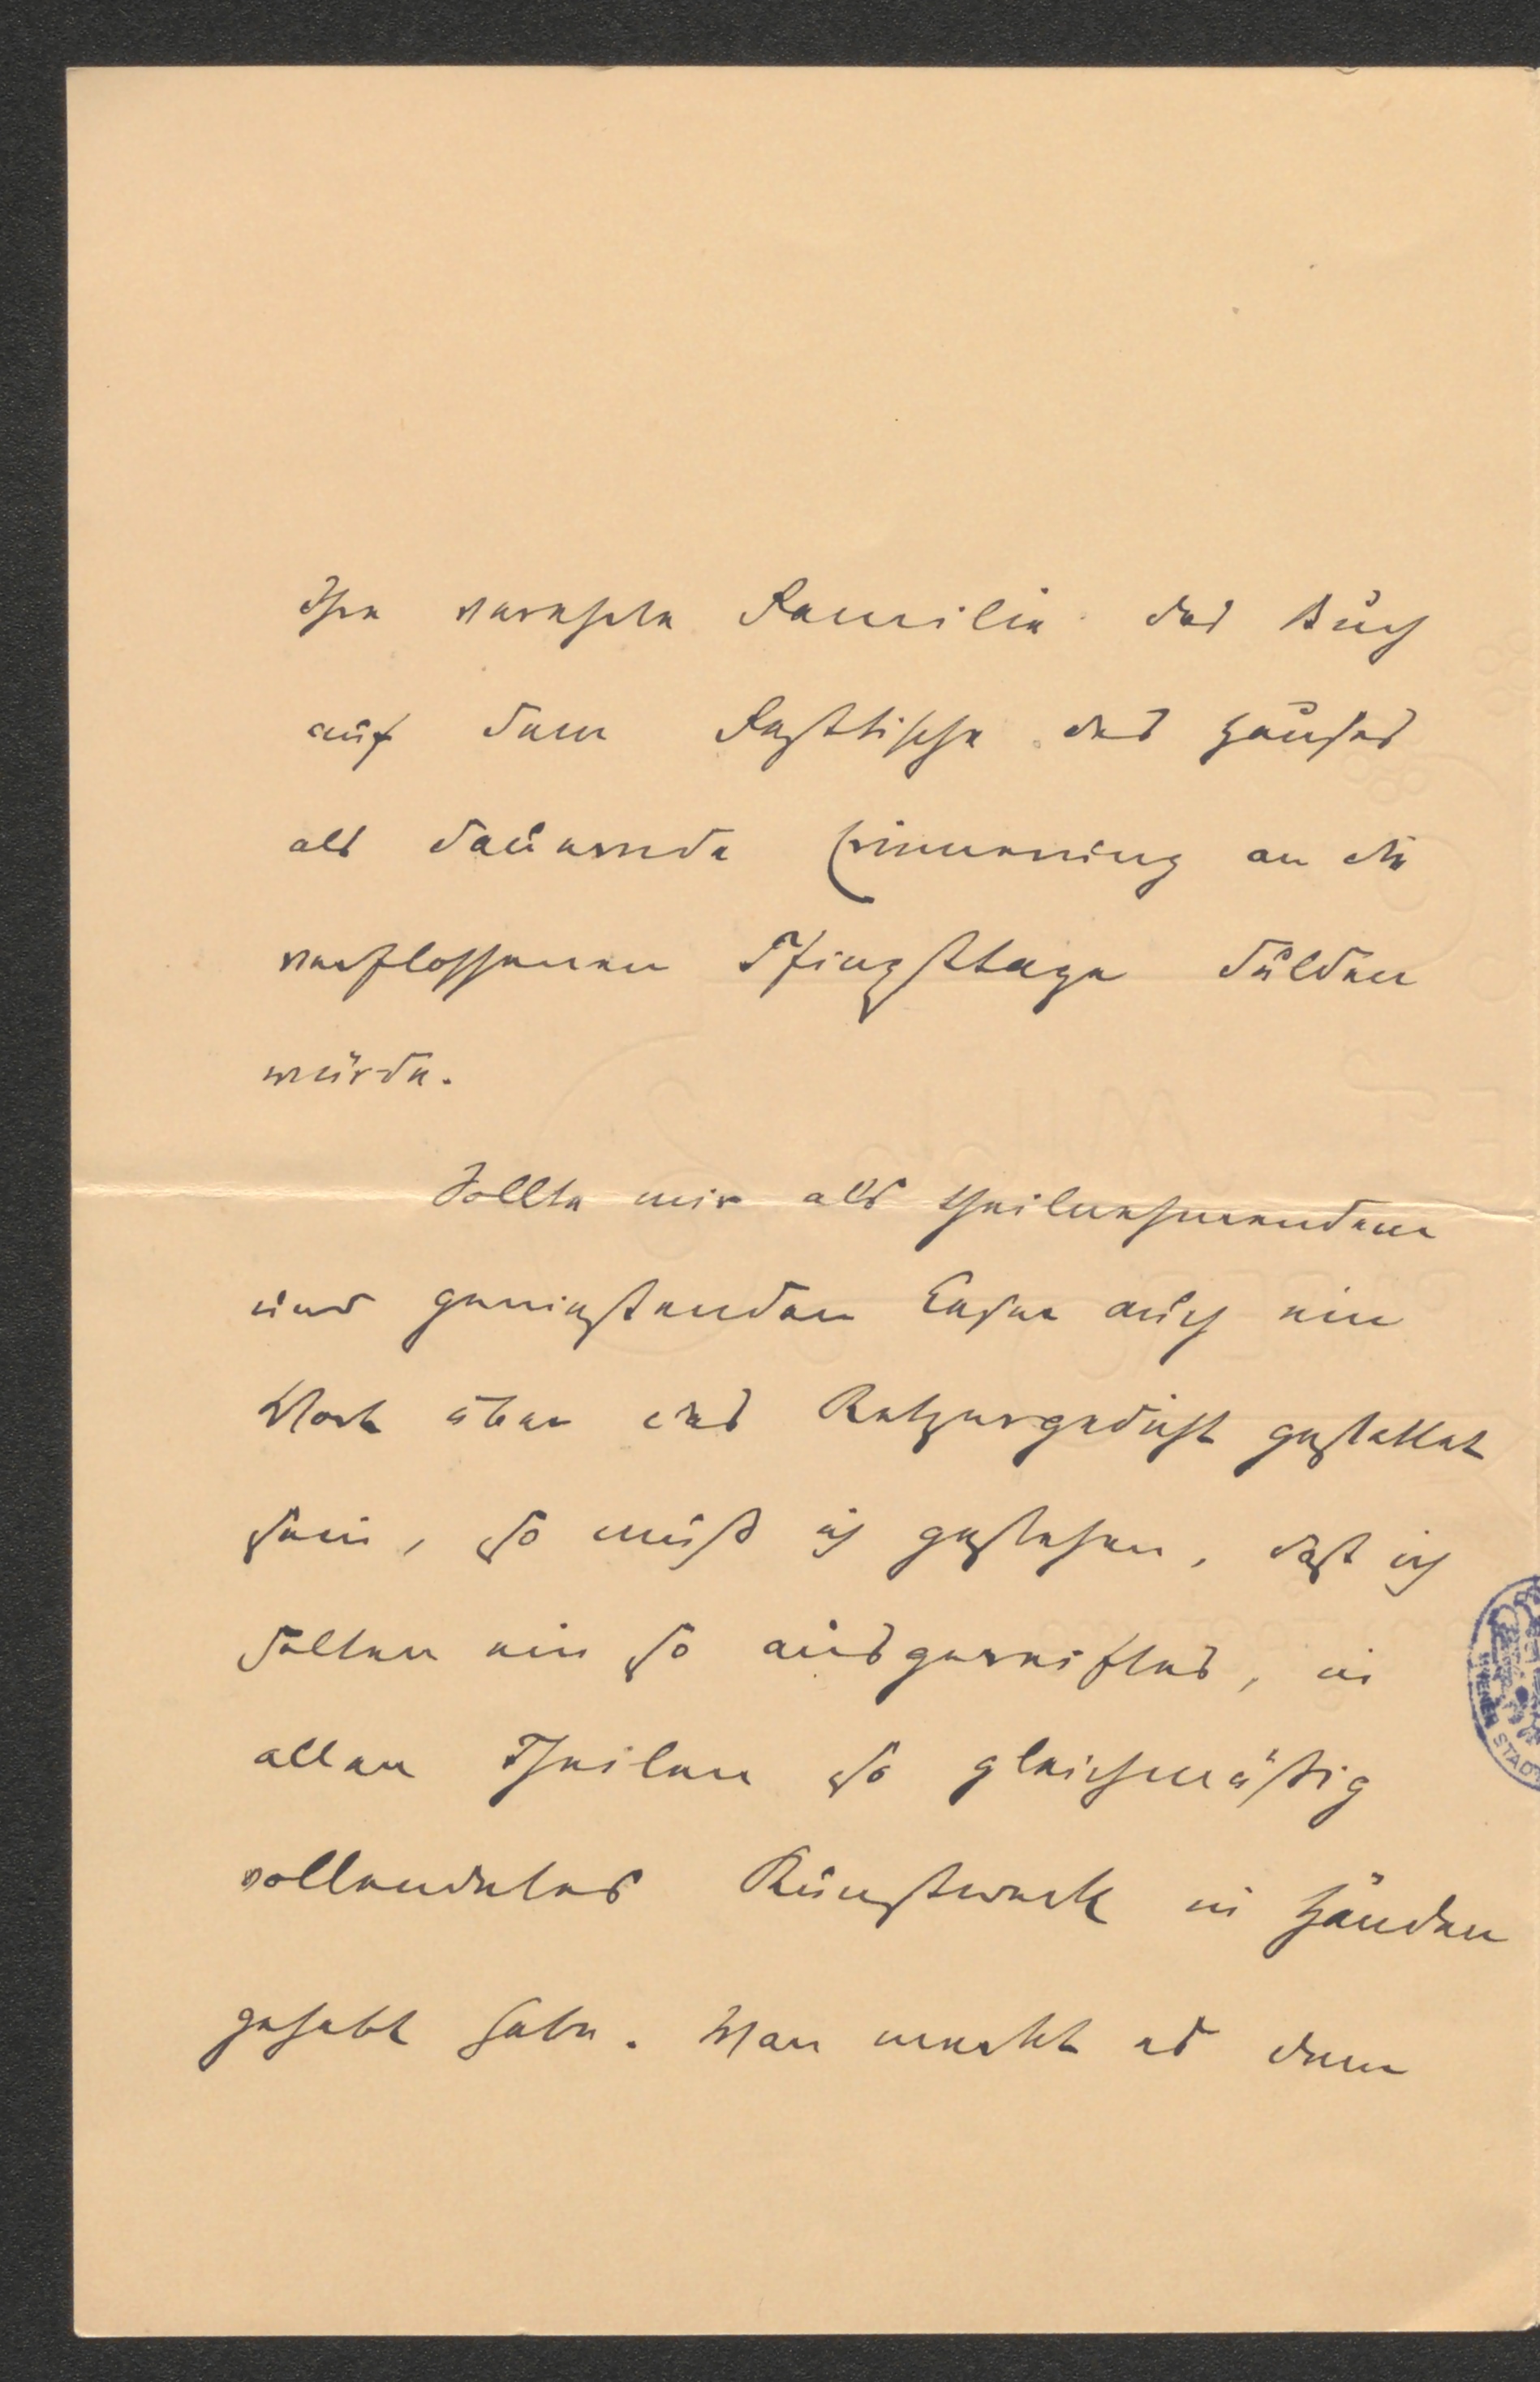 Ihre verehrte Familie das Buch
auf dem Festtische des Hauses
als dauernde Erinnerung an die
verflossenen Pfingsttage dulden
würde.
Sollte mir als theilnehmendem
und genießenden Leser auch ein
Wort über das Ratzurgedicht gestattet
sein, so muß ich gestehen, daß ich
selten ein so ausgereiftes, in
allen Theilen so gleichmäßig
vollendetes Kunstwerk in Händen
gehabt habe. Man merkt es dem
WIENER STADT